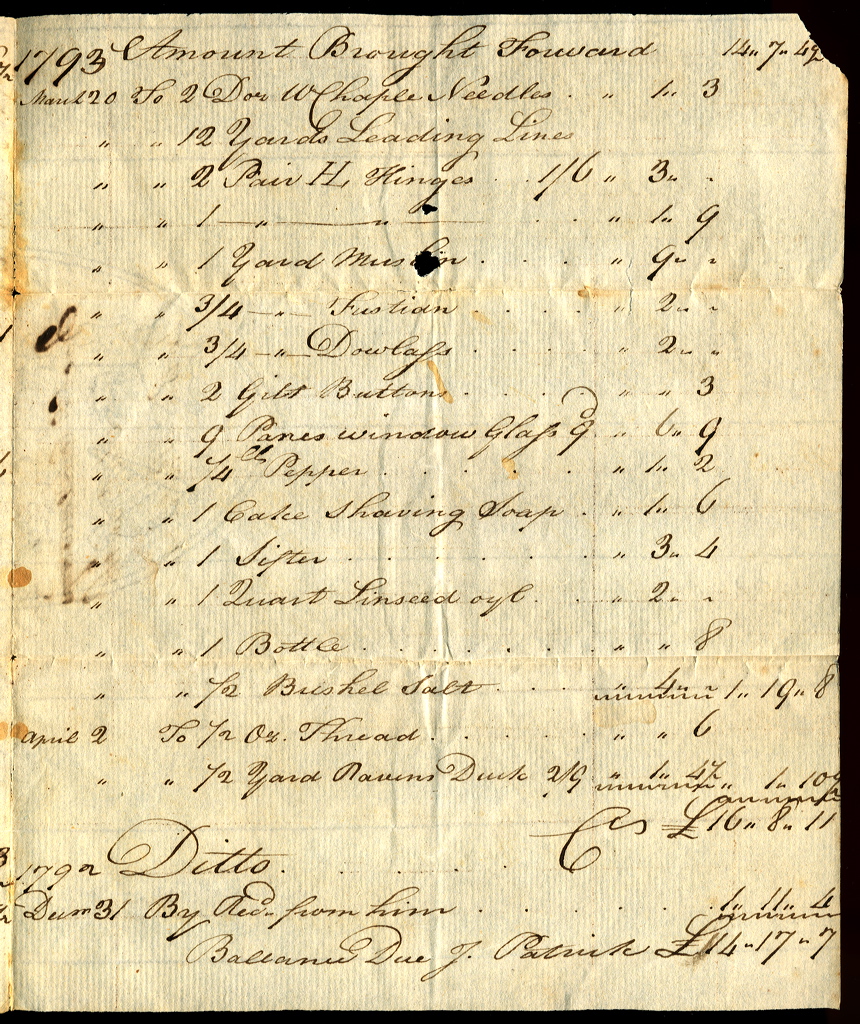 1793 Amount Brought Forward 14 " 7 " 4½
March 20 To 2 Doz W Chaple Needles . " 1 " 3
" " 12 Yards Leading Lines
" " 2 Pair H, Hinges . . 1/6 " 3 " "
" " 1 — " — " — . . " 1 " 9
" " 1 Yard Muslin . . . " 9 " "
" " 3/4 — " — Fustian . . . . " 2 " "
" " 3/4 — " — Dowlass . . . . " 2 " "
" " 2 Gilt Buttons . . . . " " 3
" " 9 Panes window Glass 9d " 6 " 9
" " 1/4 lb Pepper . . . . . " 1 " 2
" " 1 Cake Shaving Soap . " 1 " 6
" " 1 Sifter . . . . . . " 3 " 4
" " 1 Quart Linseed oyl . . " 2 " "
" " 1 Bottle . . . . . . " " 8
" " 1/2 Bushel Salt . . . " 4 " " 1 " 19 " 8
April 2 To 1/2 Oz. Thread . . . . . " " 6
" " 1/2 Yard Ravens Duck 2/9 " 1 " 4½ " 1 " 10½
£16 " 8 " 11
1792 Ditto . . . . .
Decm 31 By Recd. from him . . . . . 1 " 11 " 4
Ballance Due J. Patrick £14 " 17 " 7